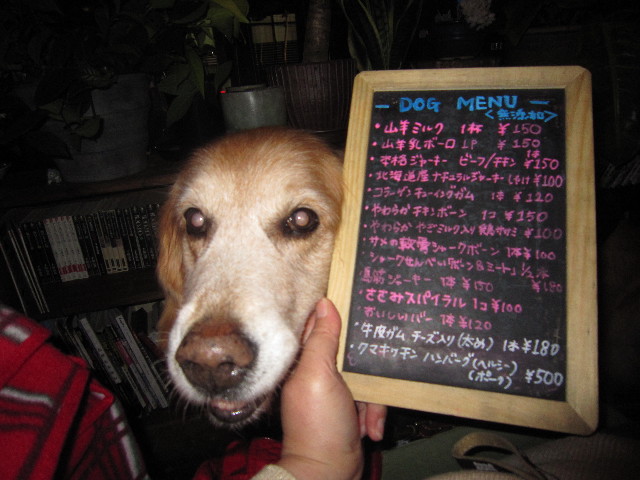 DOG MENU
<無添加>
・山羊ミルク 1杯 ¥150
・山羊乳ボーロ 1P ¥150
ジャーキー ビーフ/チキン 1本 ¥150
北海道産ナチュラルジャーキー ¥100
コラーゲンチューイングガム 1本 ¥120
・やわらかチキンボーン 1コ ¥150
・やわらかやぎミルク入り鶏ササミ ¥100
・サメの軟骨シャークボーン 1本 ¥100
・シャークせんべい(ボーン&ミート) ¥180
馬筋ジャーキー 1本 ¥150
ささみスパイラル 1コ ¥100
おいしいバー 1本 ¥120
・牛皮ガム チーズ入り(太め) 1本 ¥180
・クマキッチン ハンバーグ(ヘルシー)
(ポーク) ¥500